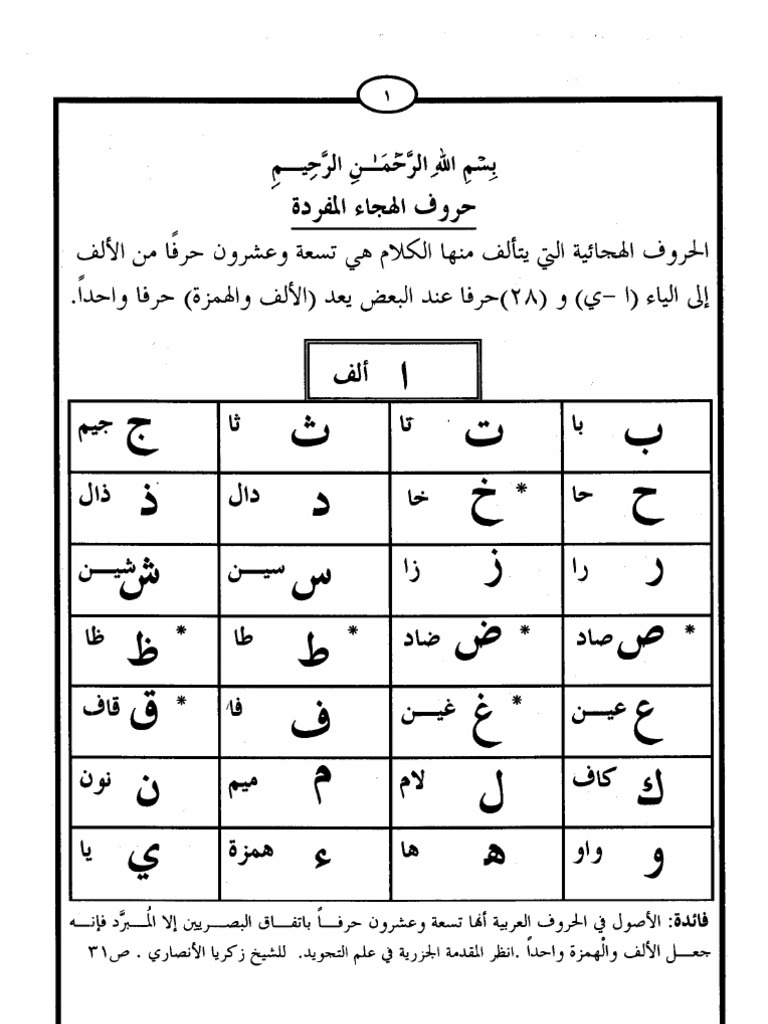 ١
بِسْمِ اللهِ الرَّحْمَـٰنِ الرَّحِيـمِ
حروف الهجاء المفردة
الحروف الهجائية التي يتألف منها الكلام هي تسعة وعشرون حرفًا من الألف
إلى الياء (ا –ي) و (٢٨)حرفا عند البعض يعد (الألف والهمزة) حرفا واحداً.
ا ألف
ب با ت تا ث ثا ج جيم
ح حا * خ خا د دال ذ ذال
ر را ز زا س سيـن ش شيـن
* ص صاد * ض ضاد * ط طا * ظ ظا
ع عيـن * غ غيـن ف فا * ق قاف
ك كاف ل لام م ميم ن نون
و واو ه ها ء همزة ي يا
فائدة: الأصول في الحروف العربية أنها تسعة وعشرون حرفـاً باتفاق البصـريين إلا المُـبرَّد فإنـه
جعـل الألف والْهمزة واحداً .انظر المقدمة الجزرية في علم التجويد. للشيخ زكريا الأنصاري . ص٣١